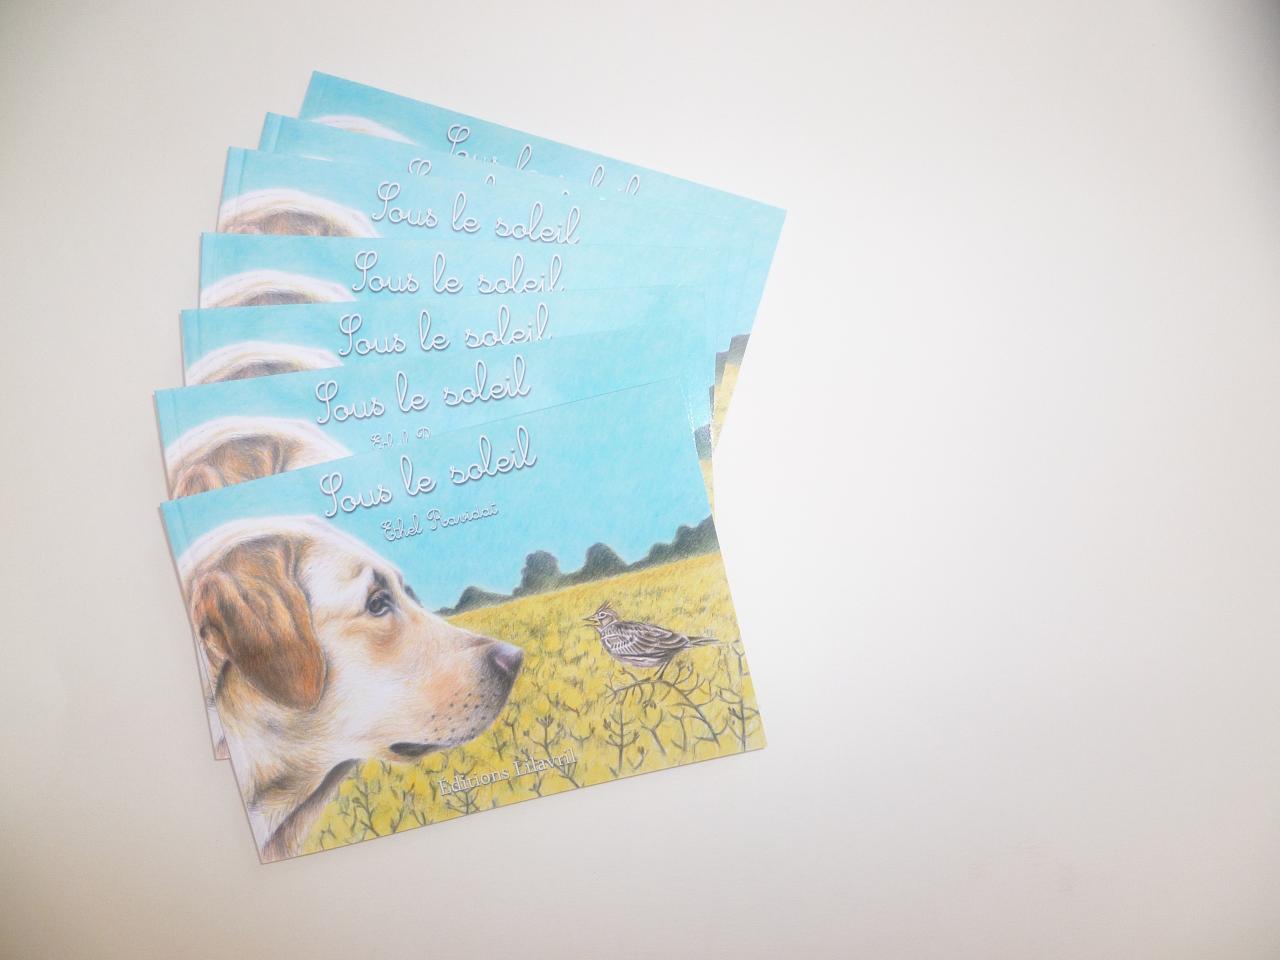 Sous le soleil
Sous le soleil
Sous le soleil
Sous le soleil
Sous le soleil
Sous le soleil
Ethel Ravidat
Éditions Lilavril